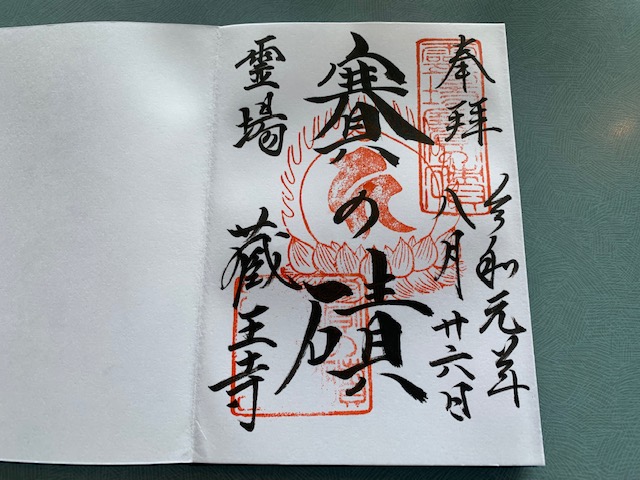 奉拝
令和元年
八月廿六日
賽の磧
霊場
蔵王寺